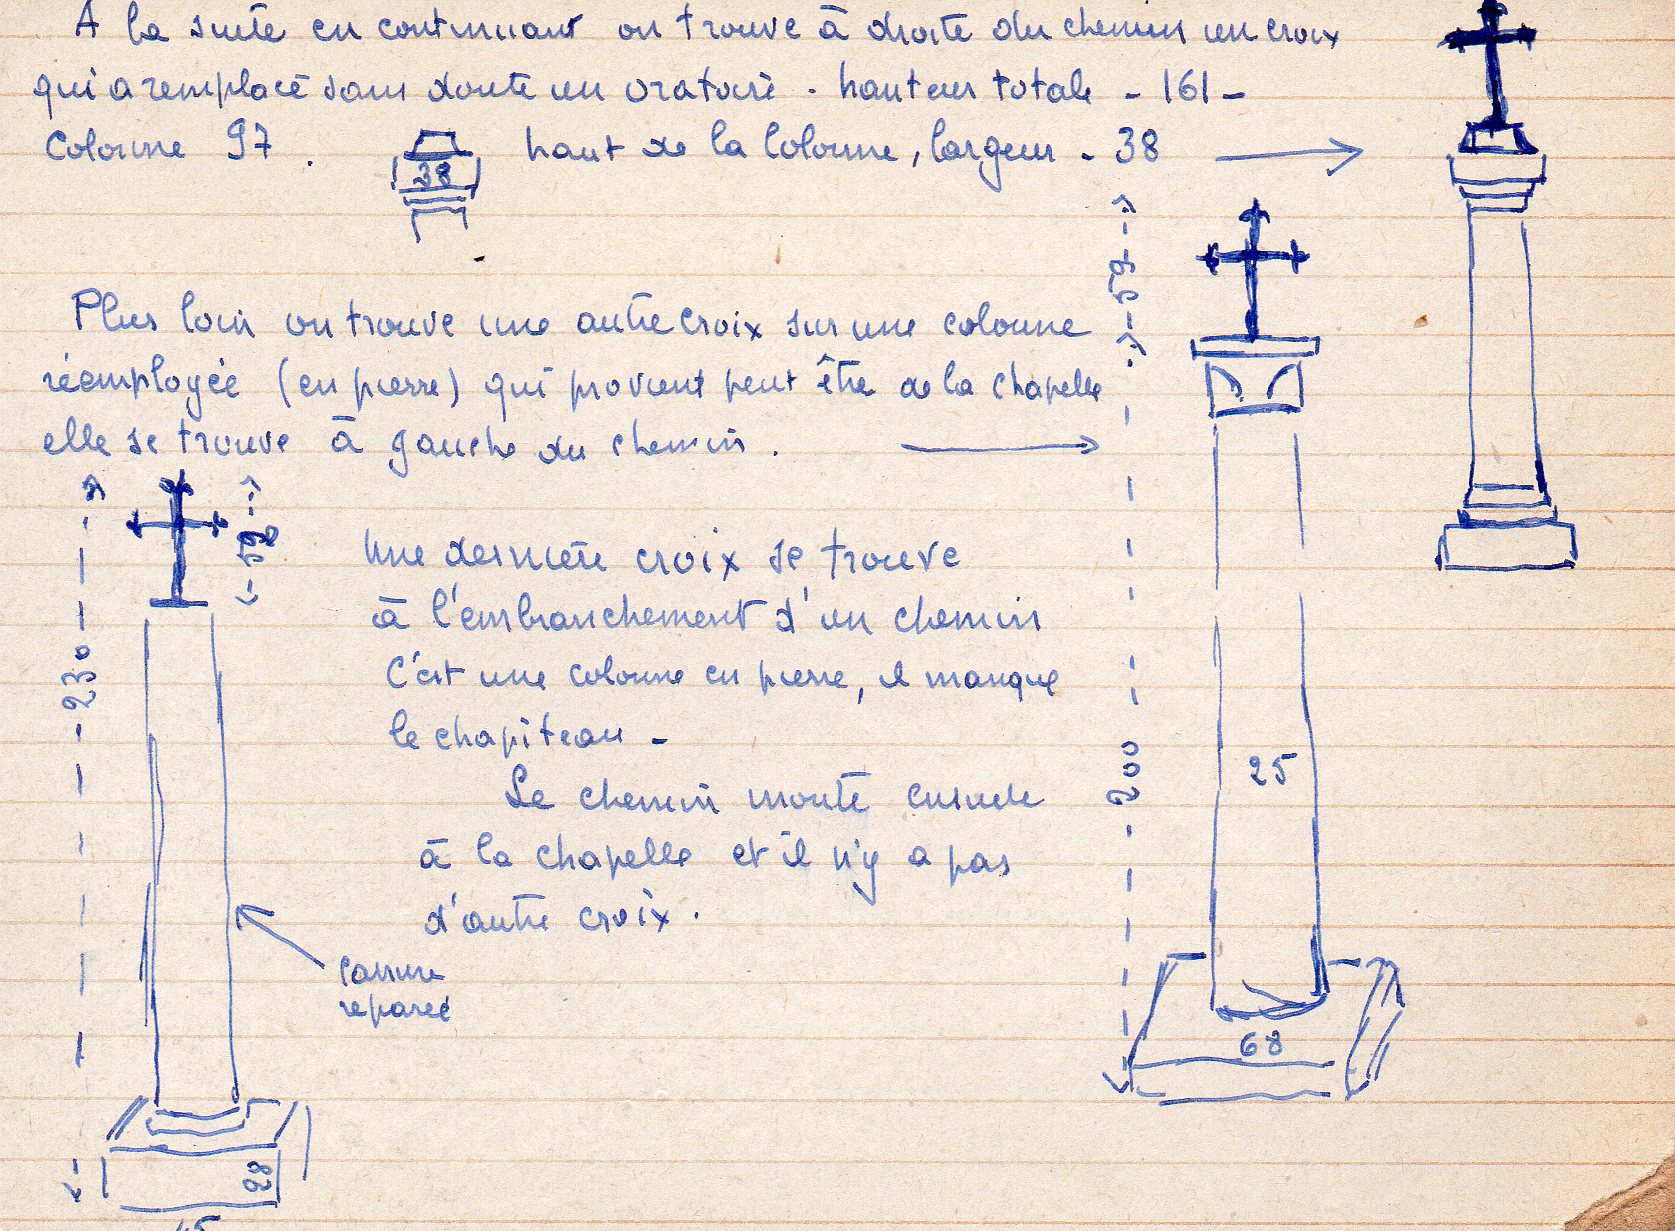 A la suite en continuant on trouve à droite du chemin un croix
qui a remplacé sans doute un oratoire - hauteur totale - 161 -
Colonne 97 . 38 haut de la Colonne, largeur - 38
59
Plus loin on trouve une autre croix sur une colonne
réemployée (en pierre) qui provient peut être de la chapelle
elle se trouve à gauche du chemin.
Une dernière croix se trouve
à l'embranchement d'un chemin
C'est une colonne en pierre, il manque
le chapiteau -
230
200
25
Le chemin monte ensuite
à la chapelle et il n'y a pas
d'autre croix.
cassure
réparée
68
28